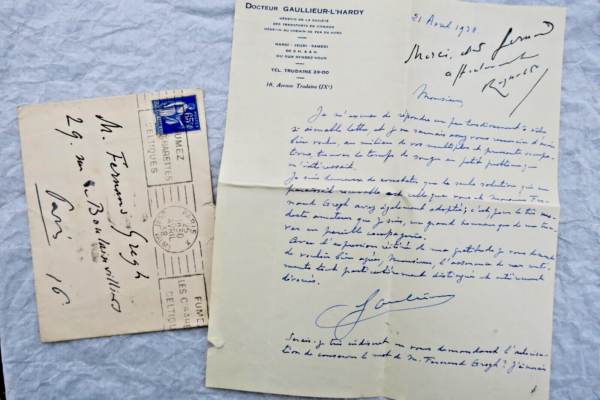 DOCTEUR GAULLIEUR-L'HARDY
MÉDECIN DE LA SOCIÉTÉ
DES TRANSPORTS EN COMMUN
MÉDECIN DU CHEMIN DE FER DU NORD
MARDI - JEUDI - SAMEDI
DE 2 H. A 4 H.
OU SUR RENDEZ-VOUS
TÉL. TRUDAINE 29-00
18, Avenue Trudaine (IXᵉ)
21 Avril
Merci, cher Fernand
affectueusement
Monsieur,
Je m'excuse de répondre un peu tardivement à votre
si aimable lettre, et je ne saurais assez vous remercier d'avoir
bien voulu, au milieu de vos multiples et pesantes occupa-
tions trouver le temps de songer au petit problème qui
m'intéressait.
Je suis heureux de constater que la seule solution qui me
paraissait raisonnable est celle que vous et Monsieur Fer-
nand Gregh avez également adoptée; c'est pour le très mo-
deste amateur que je suis, un grand honneur que de me trou-
ver en pareille compagnie.
Avec l'expression réitérée de ma gratitude je vous demande
de vouloir bien agréer, Monsieur, l'assurance de mes senti-
ments tout particulièrement distingués et entièrement
dévoués.
Gaullieur
Serais-je très indiscret en vous demandant l'autorisa-
tion de conserver le mot de M. Fernand Gregh? J'aimerais
M. Fernand Gregh
29. rue de Boulainvilliers
Paris 16
65
FUMEZ
CIGARETTES
CELTIQUES
PARIS
AVRIL
FUMEZ
LES CIGARETTES
CELTIQUES